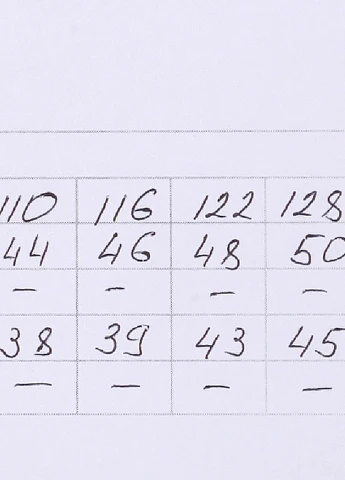 110 116 122 128
44 46 48 50
– – – –
38 39 43 45
– – – –